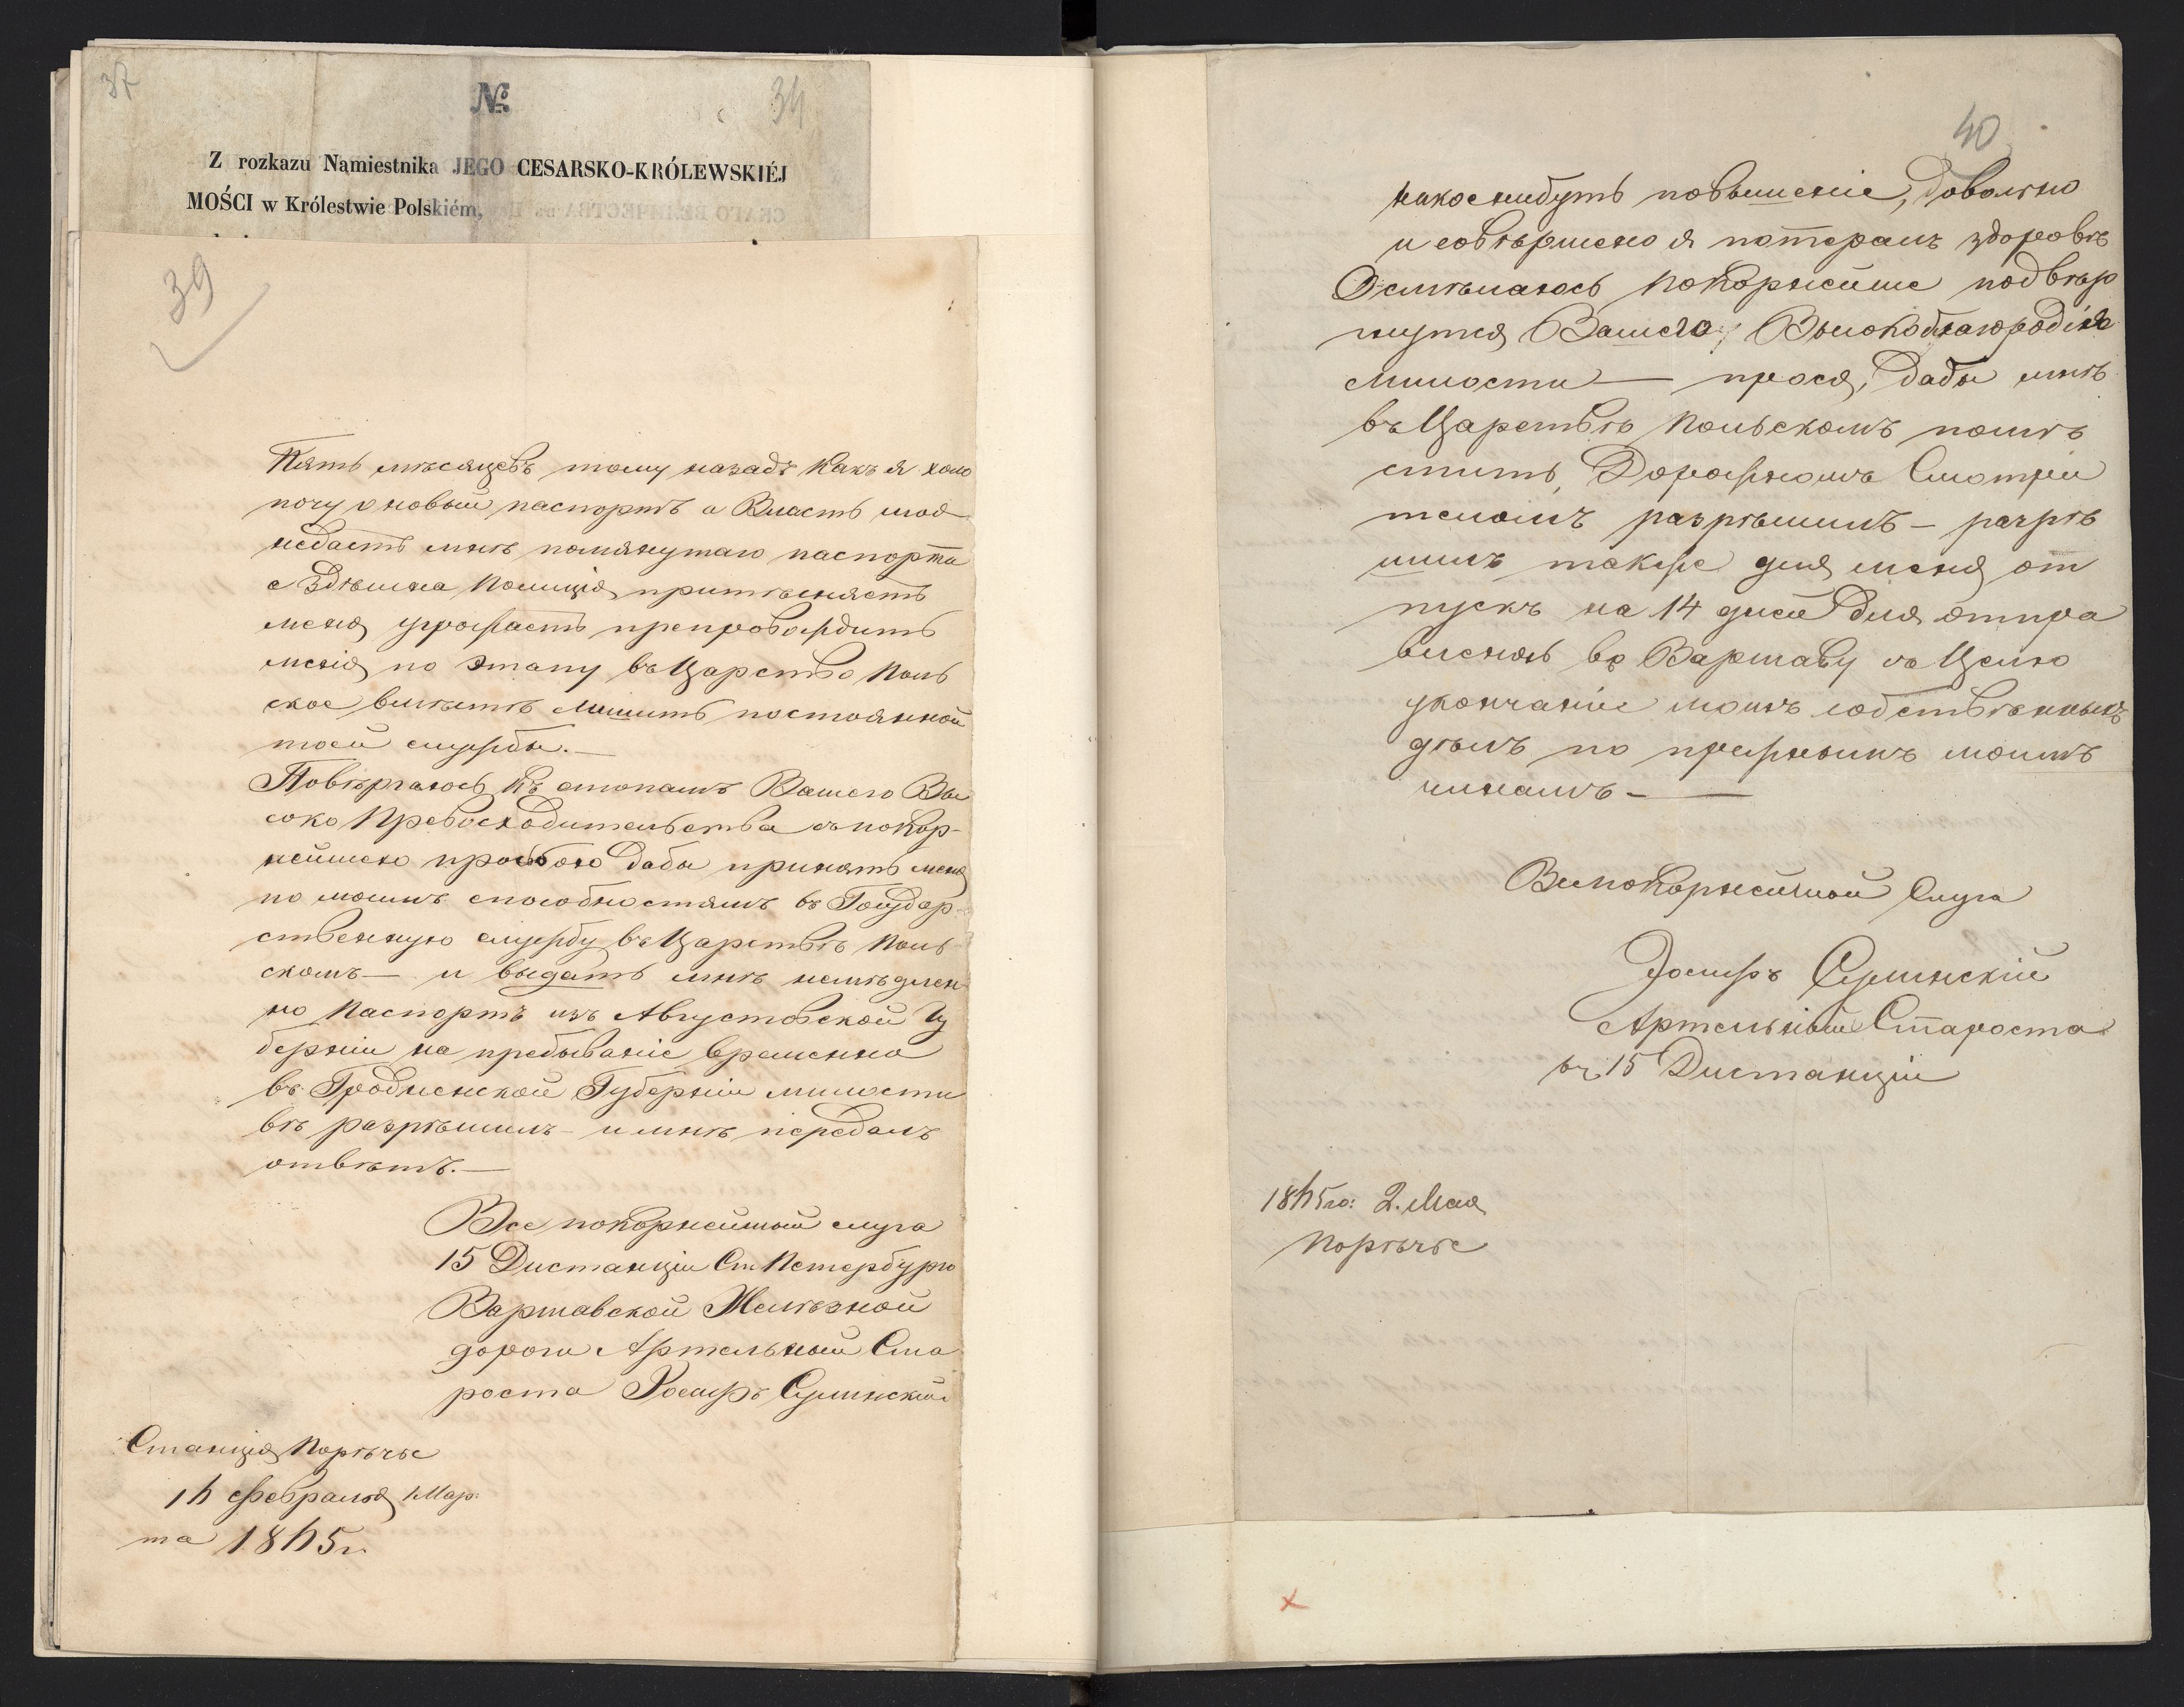 37
№
34
Z rozkazu Namiestnika JEGO CESARSKO-KRÓLEWSKIÉJ
MOŚCI w Królestwie Polskiém,
39
Пять мѣсяцевъ тому назадъ какъ я хло
почу о новый паспортъ а Власть моя
недаетъ мнѣ помянутаго паспорта
а Здѣшна Полиція притѣсняетъ
меня угрожаетъ препровардить
меня по этапу въ Царство Поль
ское вмѣстѣ лишить постоянной
моей службы.—
Повѣргаюсь къ стопамъ Вашего Вы
соко Превосходительства съ покор-
нейшею прозьбою дабы принять меня
по моимъ способностямъ въ Государ-
ственную службу въ Царствѣ Поль
скомъ — и выдать мнѣ немѣдлен
но Паспортъ изъ Августовской Гу
берніи на пребываніе временно
въ Гродненской Губерніи милости
вѣ разрѣшилъ — и мнѣ передалъ
отвѣтъ.—
Все покорнейший слуга
15 Дистанціи Ст Петербурго
Варшавской Желѣзной
дороги Артельный Ста
роста Іосифъ Сулинский
Станція Порѣчье
1865 г.
40
какое нибудть повышеніе, довольно
и совѣршено я потералъ здоровѣ
Осмѣлаюсь покорнейше подвѣр
нутся Вашего Высокоблагородія
милости — прося, дабы мнѣ
въ Царствѣ Польскомъ помѣ
стить, Дорожномъ Смотри
телемъ разрѣшилъ — разрѣ
шилъ также для меня от
пускъ на 14 дней для отпра
вленія въ Варшаву съ Целю
укончаніе моихъ собствѣнныхъ
дѣлъ по прежнымъ моимъ
чинамъ —
Всепокорнейший Слуга
Іосифъ Сулинскій
Артельный Староста
въ 15 Дистанціи
1865го: 2. Мая
Порѣчье